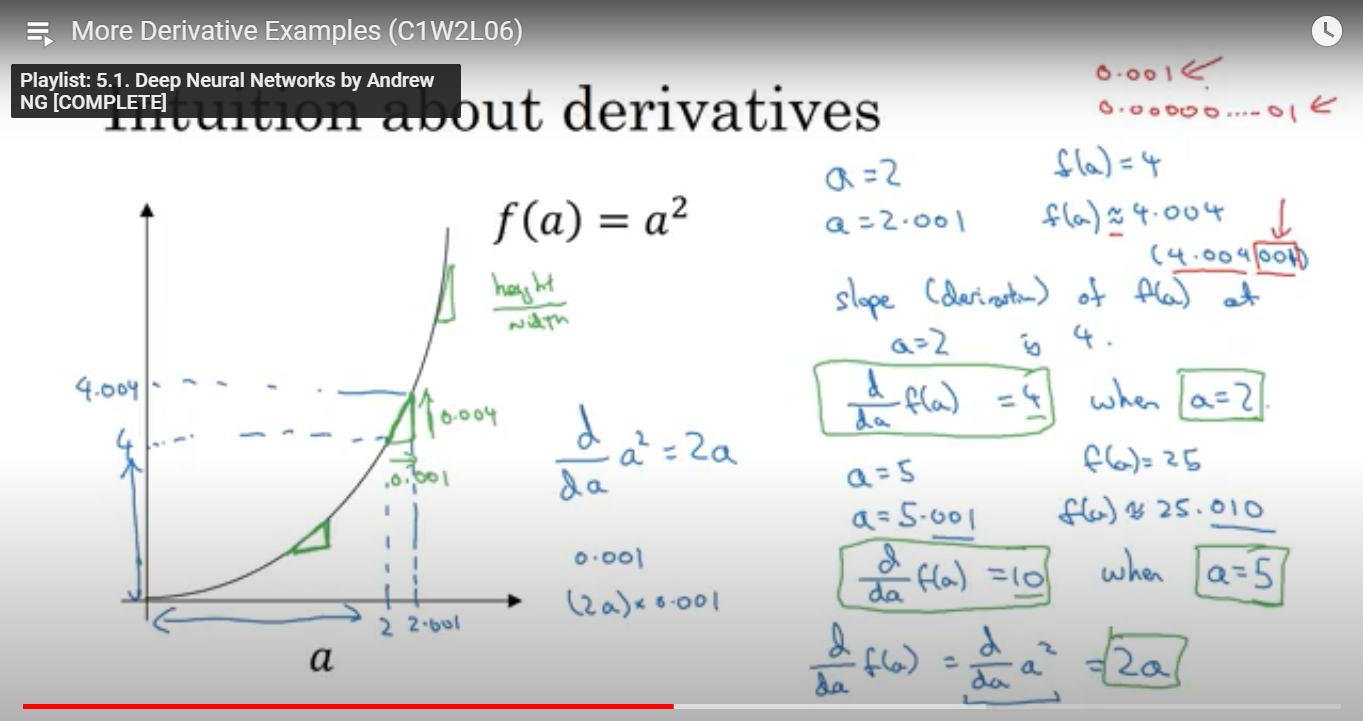 More Derivative Examples (C1W2L06)
Playlist: 5.1. Deep Neural Networks by Andrew
NG [COMPLETE]
Intuition about derivatives
0.001
0.00000.....01
f(a) = a²
height
width
4.004
4
0.004
0.001
2 2.001
a
d/da a² = 2a
0.001
(2a) × 0.001
a = 2 f(a) = 4
a = 2.001 f(a) ≈ 4.004
(4.004001)
slope (derivative) of f(a) at
a=2 is 4.
d/da f(a) = 4 when a=2.
a = 5 f(a) = 25
a = 5.001 f(a) ≈ 25.010
d/da f(a) = 10 when a=5
d/da f(a) = d/da a² = 2a